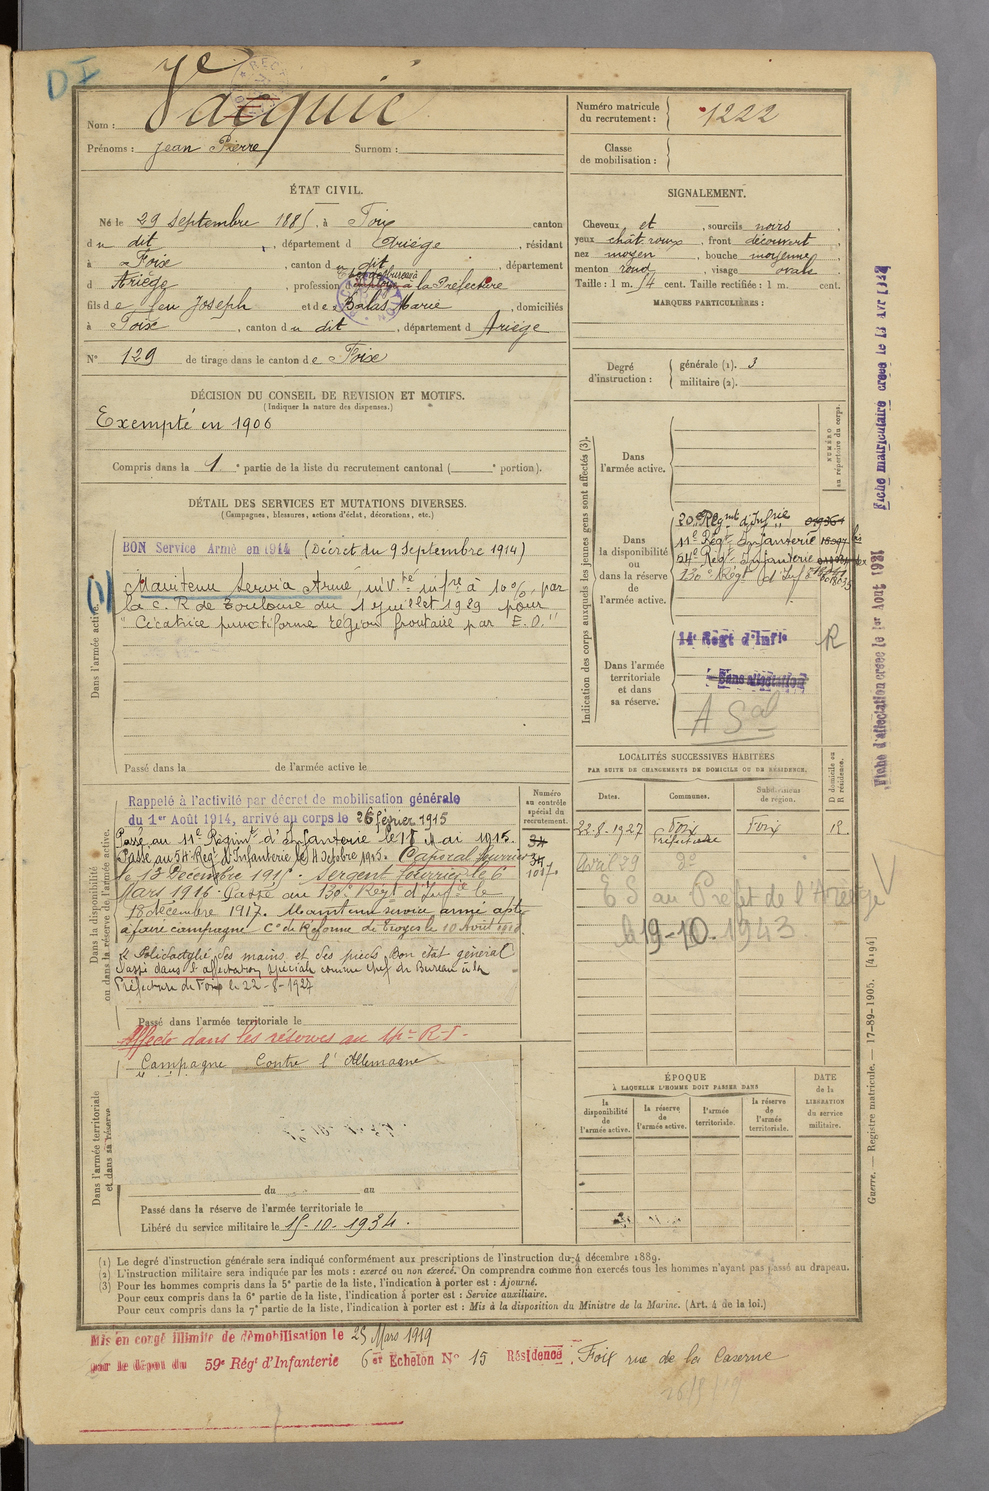 D I
Nom : Vacquié
Prénoms : Jean Pierre Surnom :
Numéro matricule du recrutement : 1222
Classe de mobilisation :
ÉTAT CIVIL.
Né le 29 Septembre 1885, à Foix canton
du dit, département d Ariège, résidant
à Foix, canton du dit, département
d Ariège, profession à la Préfecture
fils de feu Joseph et de Balas Marie, domiciliés
à Foix, canton du dit, département d Ariège
N° 129 de tirage dans le canton de Foix
SIGNALEMENT.
Cheveux et, sourcils noirs,
yeux chât. roux, front découvert,
nez moyen, bouche moyenne,
menton rond, visage ovale
Taille : 1 m. 54 cent. Taille rectifiée : 1 m. cent.
MARQUES PARTICULIÈRES :
Degré d'instruction : générale (1). 3
militaire (2).
DÉCISION DU CONSEIL DE REVISION ET MOTIFS.
(Indiquer la nature des dispenses.)
Exempté en 1906
Compris dans la 1e partie de la liste du recrutement cantonal ( e portion).
DÉTAIL DES SERVICES ET MUTATIONS DIVERSES.
(Campagnes, blessures, actions d'éclat, décorations, etc.)
Dans l'armée active.
BON Service Armé en 1914 (Décret du 9 Septembre 1914)
Maintenu Service Armé, inv.té inf.re à 10%, par
la C. R. de Toulouse du 1 Juillet 1929 pour
"Cicatrice punctiforme région frontaire par E.O."
Passé dans la de l'armée active le
Indication des corps auxquels les jeunes gens sont affectés (3).
NUMÉRO au répertoire du corps.
Dans l'armée active.
Dans la disponibilité ou dans la réserve de l'armée active.
20e Régmt d'Infrie
11e Régt Infanterie
54e Régt Infanterie
130e Régt d'Infie
Dans l'armée territoriale et dans sa réserve.
14e Régt d'Infie R
Sans affectation
A Sal
Fiche matriculaire créée le 13 Avr 193
Fiche d'affectation créée le 1er Août 1931
Dans la disponibilité ou dans la réserve de l'armée active.
Numéro au contrôle spécial du recrutement.
Rappelé à l'activité par décret de mobilisation générale
du 1er Août 1914, arrivé au corps le 26 février 1915
Passé au 11e Régimt d'Infanterie le 18 Mai 1915.
Passé au 54e Régt d'Infanterie le 4 Octobre 1915. Caporal fourrier
le 13 Décembre 1915. Sergent fourrier le 6
Mars 1916. Passé au 130e Régt d'Infie le
18 décembre 1917. Maintenu service armé apte
à faire campagne Con de Réforme de Troyes le 10 Avril 1918
Polidactylie des mains et des pieds Bon état général
Passé dans l'affectation spéciale comme chef de Bureau à la
Préfecture de Foix le 22-8-1927
Passé dans l'armée territoriale le
Affecté dans les réserves au 14e R.I.
LOCALITÉS SUCCESSIVES HABITÉES
PAR SUITE DE CHANGEMENTS DE DOMICILE OU DE RÉSIDENCE.
D domicile ou R résidence.
Dates. Communes. Subdivisions de région.
22-8-1927 Foix Préfecture Foix R.
Avril 29 do
ES au Préfet de l'Ariège
le 19-10-1943
Dans l'armée territoriale et dans sa réserve.
Campagne Contre l'Allemagne
du au
Passé dans la réserve de l'armée territoriale le
Libéré du service militaire le 15-10-1934.
ÉPOQUE
À LAQUELLE L'HOMME DOIT PASSER DANS
la disponibilité de l'armée active.
la réserve de l'armée active.
l'armée territoriale.
la réserve de l'armée territoriale.
DATE de la LIBÉRATION du service militaire.
Guerre. — Registre matricule. — 17-89-1905. [4194]
(1) Le degré d'instruction générale sera indiqué conformément aux prescriptions de l'instruction du 4 décembre 1889.
(2) L'instruction militaire sera indiquée par les mots : exercé ou non exercé. On comprendra comme non exercés tous les hommes n'ayant pas passé au drapeau.
(3) Pour les hommes compris dans la 5e partie de la liste, l'indication à porter est : Ajourné.
Pour ceux compris dans la 6e partie de la liste, l'indication à porter est : Service auxiliaire.
Pour ceux compris dans la 7e partie de la liste, l'indication à porter est : Mis à la disposition du Ministre de la Marine. (Art. 4 de la loi.)
Mis en congé illimité de démobilisation le 25 Mars 1919
par le dépôt du 59e Régt d'Infanterie 6e Echelon N° 15 Résidence Foix rue de la Caserne